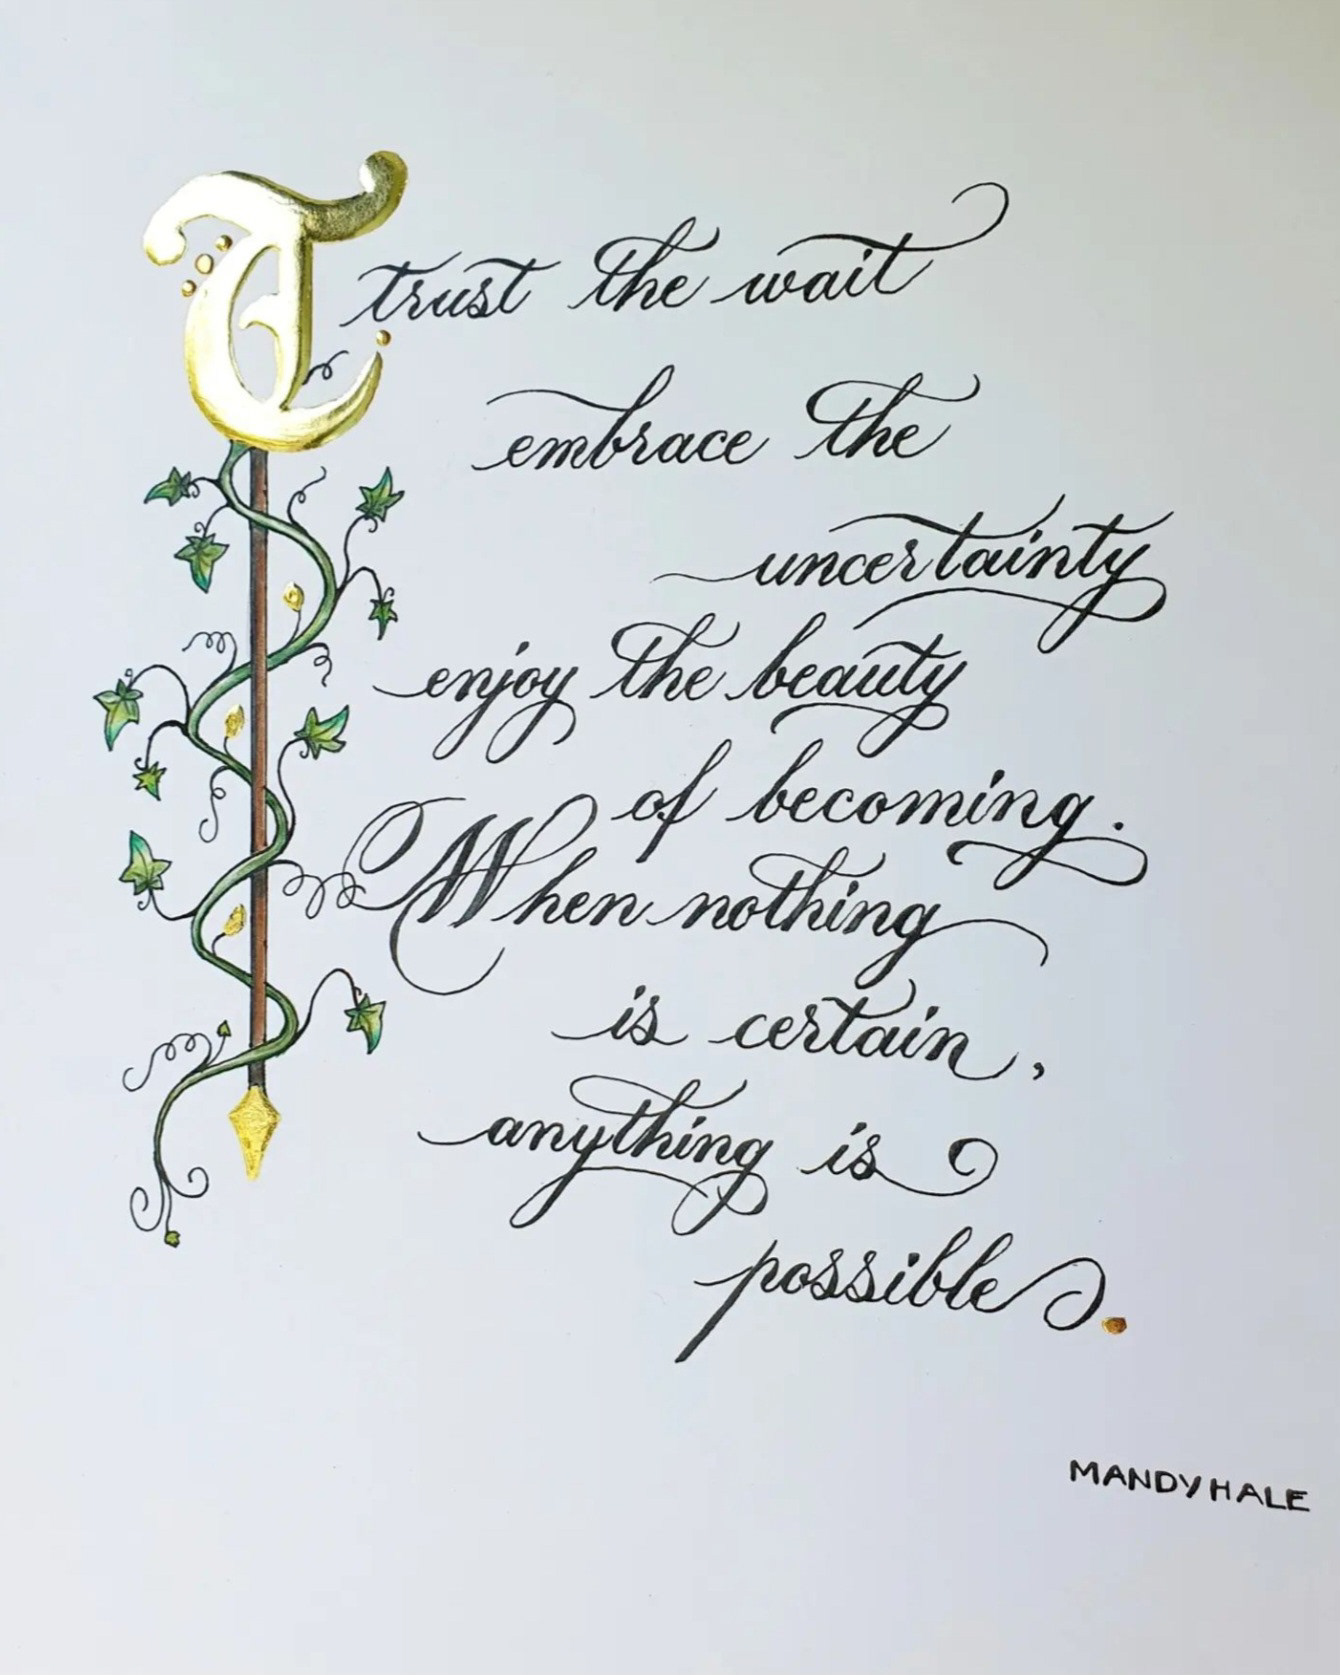 T trust the wait
embrace the
uncertainty
enjoy the beauty
of becoming.
When nothing
is certain,
anything is
possible.
MANDY HALE